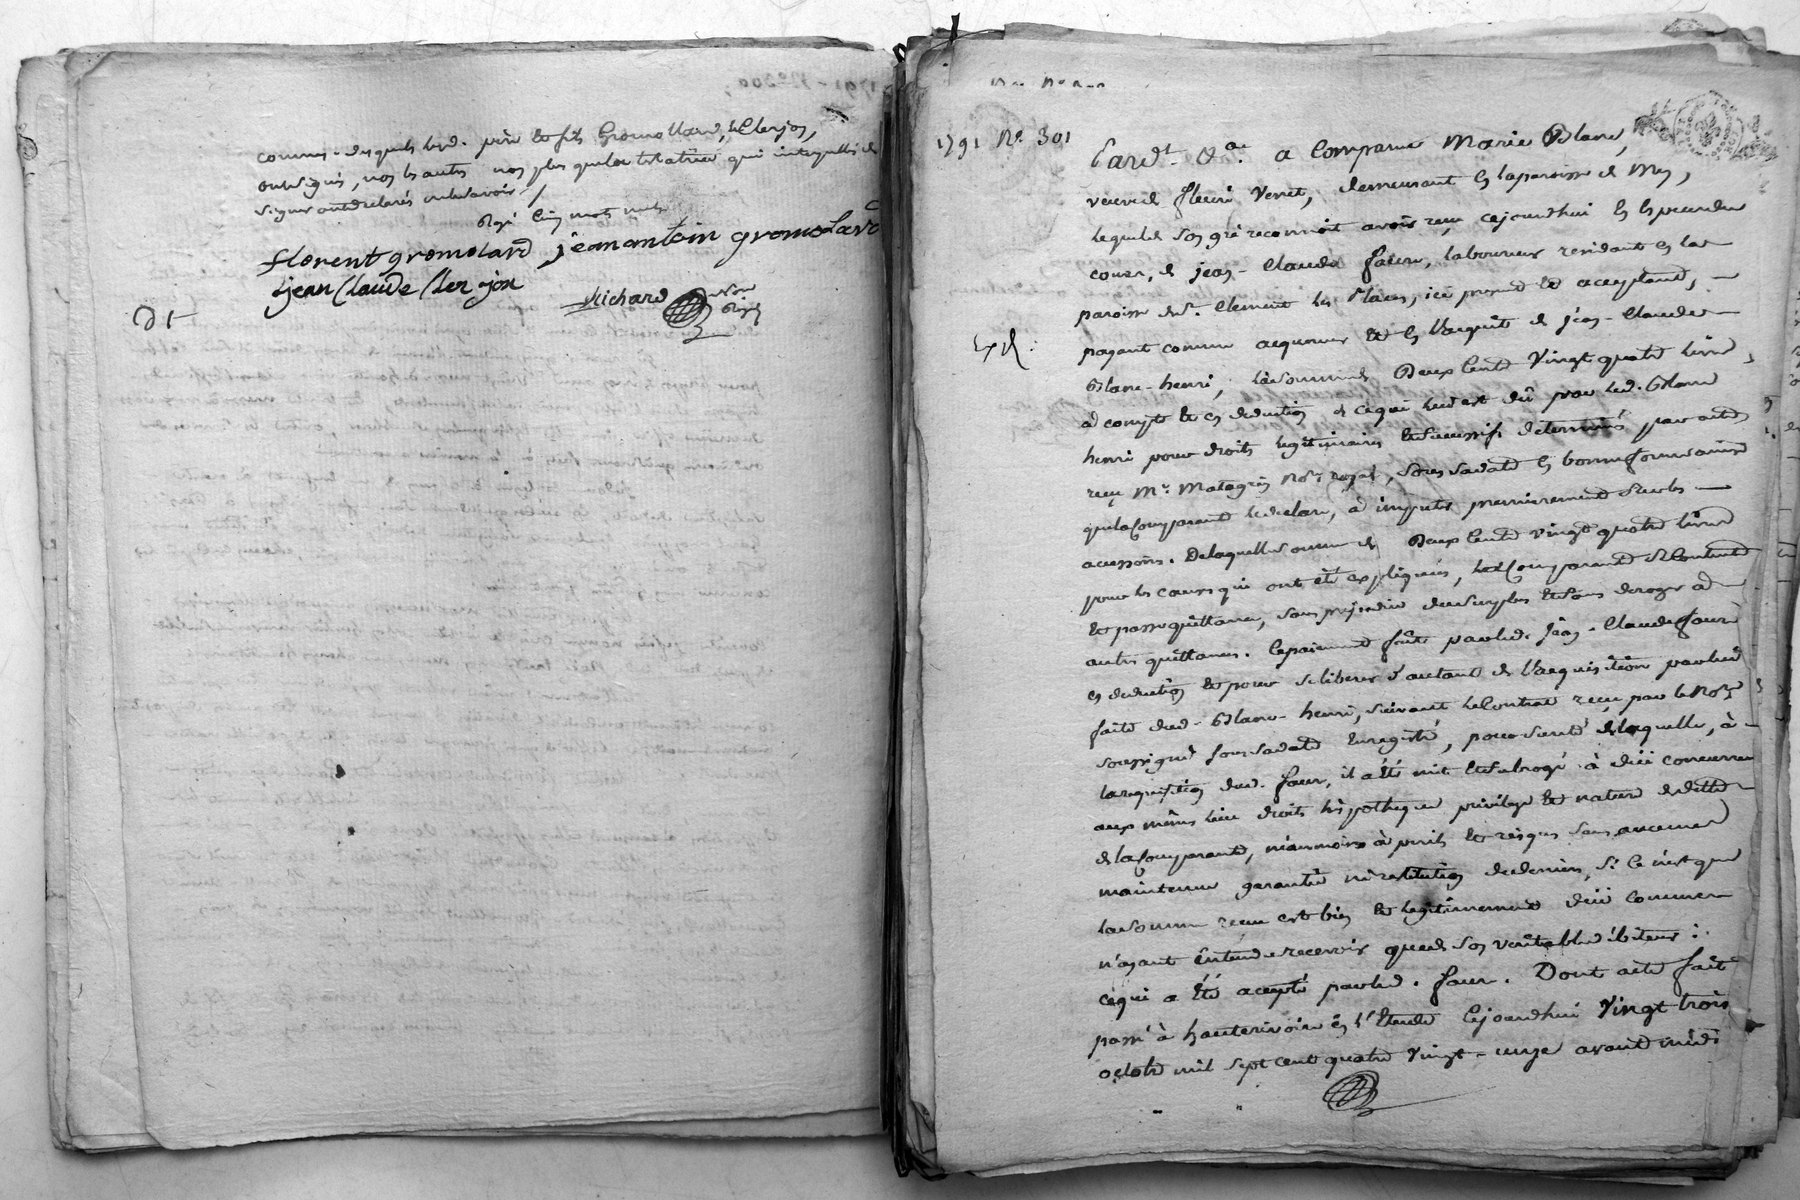 connus. desquels led. père et fils Gromollard, et Clerjon,
ont signé, non les autres non plus que la
signer ont déclaré ne le savoir /
Rayé cinq mots nuls
florent gromolard jean antoin gromolard
jean Claude Cler jon
Richard
1791 Nº. 301
Pard.t &a. a Comparue Marie Blanc,
veuve de fleuri Verret, demeurant en la paroisse de Mey,
laquelle de son gré reconnoit avoir reçu cejourdhui en especes de
cours, de jean-Claude faure, laboureur residant en la
paroisse de St. Clement les Places, ici present et acceptant,
payant comme acquereur et en l'acquit de jean-Claude
Blanc-henri, la somme de Deux Cent Vingt quatre livres,
à compte et en deduction de ce qui lui est dû par led. Blanc
henri pour droits legitimaires et successifs determinés par acte
reçu Me. Matagrin Nore. royal, sous sa date en bonne forme ainsi
que la Comparante le declare, à imputer premierement sur les
accessoires. De laquelle somme de Deux Cent vingt quatre livres
pour les causes qui ont été expliquées, la Comparante se Contente
et passe quittance, sans prejudice du surplus et sans deroger à
autres quittances. Ce paiement fait par led. jean-Claude faure
en deduction et pour se liberer d'autant de l'acquisition par lui
faite dud. Blanc-henri, suivant le Contrat reçu par le Nore.
soussigné sous sa date Enregistré, pour sureté de laquelle, à
la requisition dud. faure, il a été mis et subrogé à due concurrence
aux mêmes lieu droits hipotheque privilege et nature de dette
de la Comparante, néanmoins à perils et risques sans aucune
maintenue garantie ni restitution de deniers, si ce n'est que
la somme reçue est bien et legitimement due comme
n'ayant entendu recevoir que de son veritable débiteur :
ce qui a été accepté par led. faure. Dont acte fait
passé à hauterivoire en l'Etude Cejourdhui Vingt trois
octobre mil sept cent quatre Vingt-onze avant midi